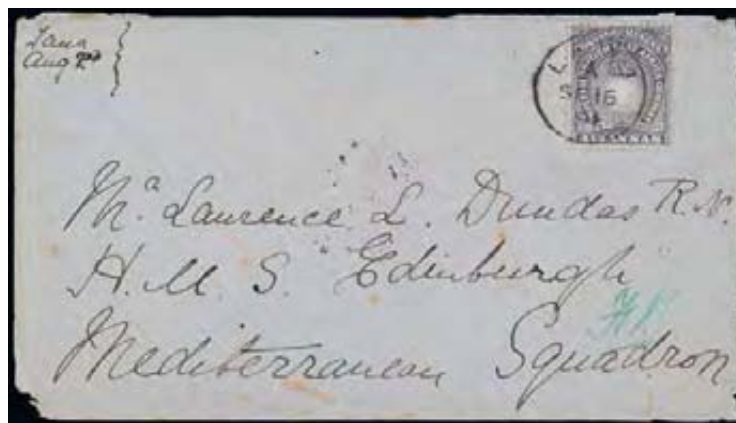 Tana
Aug 2nd
L A
SP 16
Mr. Laurence L. Dundas R.N.
H.M.S. "Edinburgh"
Mediterranean Squadron